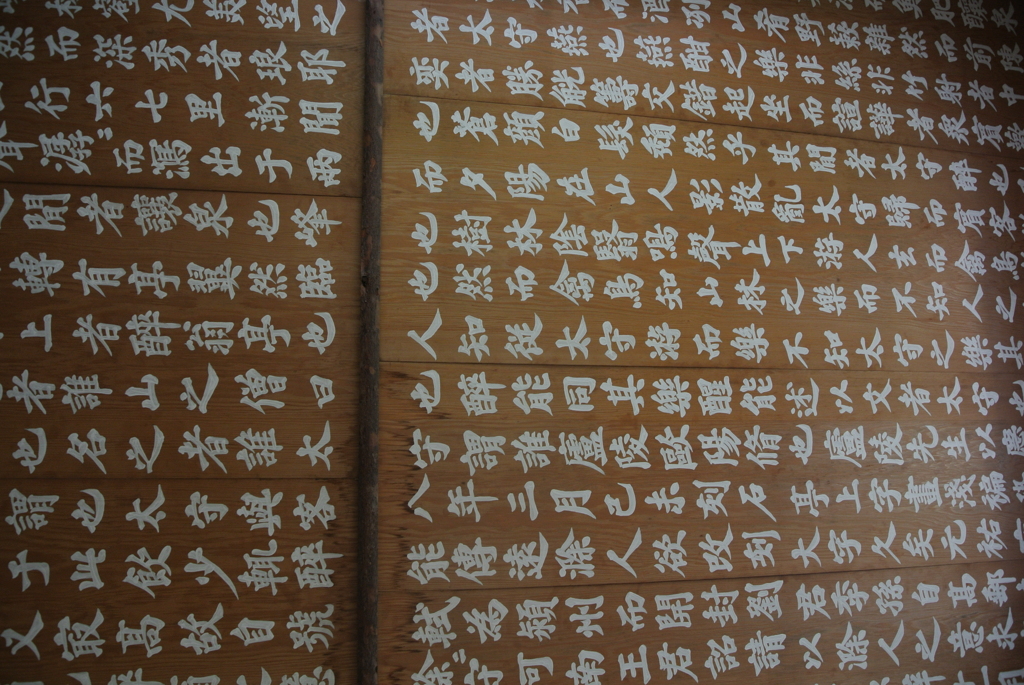 壑尤美望之
然而深秀者琅耶
行六七里漸聞
潺潺而瀉出于兩
間者釀泉也峰
轉有亭翼然臨
上者醉翁亭也
者誰山之僧曰
也名之者誰太
謂也太守與客
于此飲少輒醉
又最高故自號
山肴野蔌雜然而前陳
者太守宴也宴酣之樂非絲非竹射者中
奕者勝觥籌交錯起坐而諠譁者衆賓
也蒼顏白髮頹然乎其間者太守醉也
而夕陽在山人影散亂太守歸而賓客
也樹林陰翳鳴聲上下遊人去而禽鳥
也然而禽鳥知山林之樂而不知人之
人知從太守游而樂不知太守之樂其
也醉能同其樂醒能述以文者太守也
守謂誰廬陵歐陽脩也廬陵先生以慶
八年三月己未刻石亭上字畫淺褊
能傳遠滁人欲改刻大字久矣元祐
軾為潁州而開封劉君季孫自高郵
滁守河南王君詔請以滁人之意求